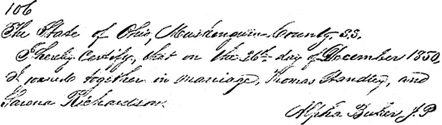 106
The State of Ohio, Muskingum County, S.S.
I hereby Certify, that on the 26th day of December 1850,
I joined together in marriage, Thomas Handley, and
Richardson
Alpha Buker, J.P